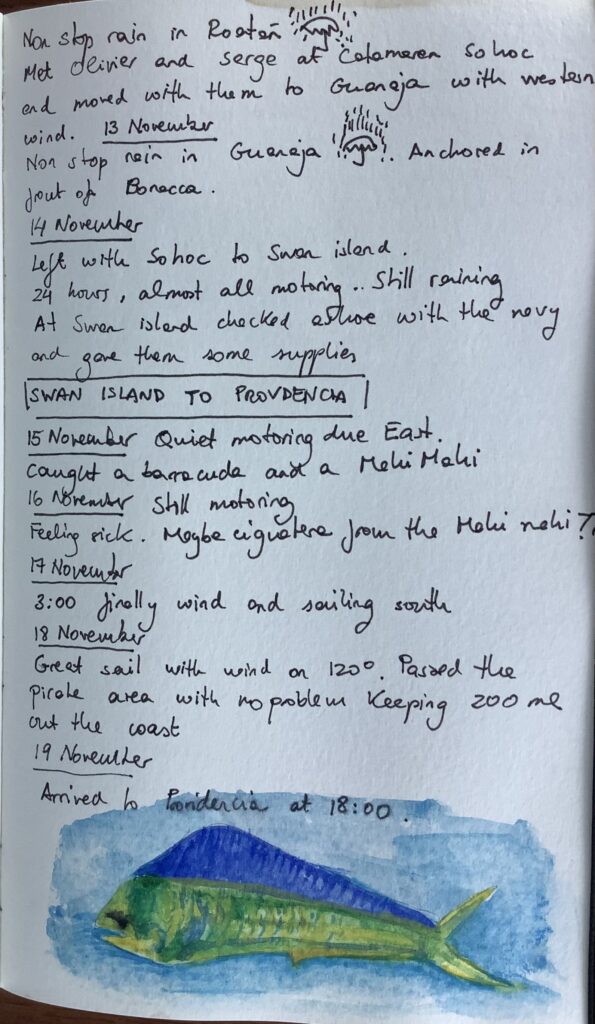 Non stop rain in Roatan
Met Olivier and Serge at Catamaran Sohoc
and moved with them to Guanaja with western
wind. 13 November
Non stop rain in Guanaja. Anchored in
front of Bonacca.
14 November
Left with Sohoc to Swan island.
24 hours, almost all motoring.. Still raining
At Swan island checked ashore with the navy
and gave them some supplies
SWAN ISLAND TO PROVDENCIA
15 November Quiet motoring due East.
Caught a barracuda and a Mahi Mahi
16 November Still motoring
Feeling sick. Maybe ciguatera from the Mahi mahi??
17 November
3:00 finally wind and sailing south
18 November
Great sail with wind on 120°. Passed the
pirate area with no problem Keeping 200 me
out the coast
19 November
Arrived to Providencia at 18:00.